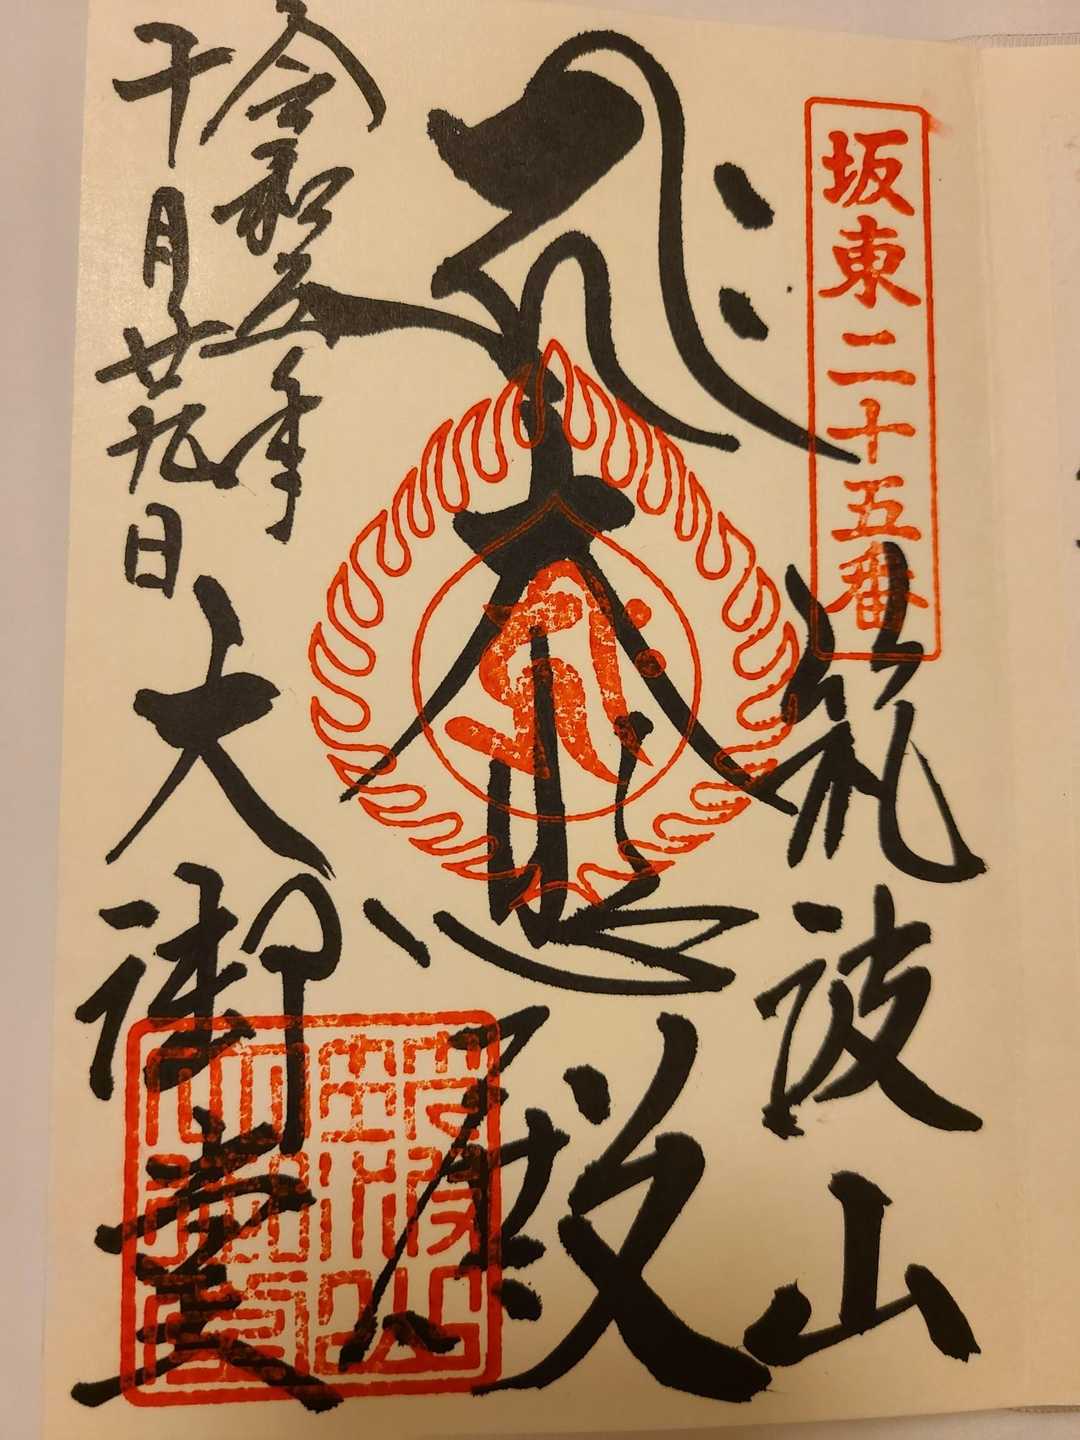 坂東二十五番
筑波山
大悲殿
大御堂
令和 年
十月廿九日